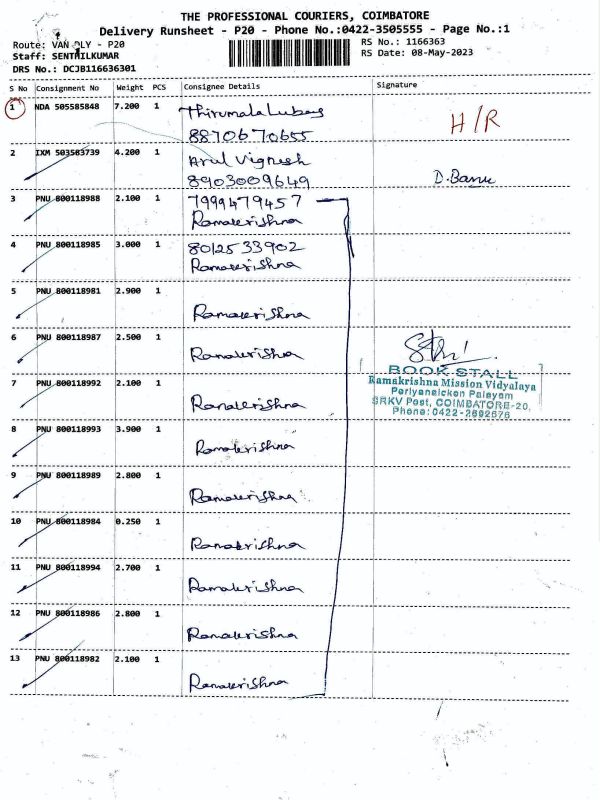 THE PROFESSIONAL COURIERS, COIMBATORE
Delivery Runsheet - P20 - Phone No.:0422-3505555 - Page No.:1
Route: VAN OLY - P20
RS No.: 1166363
Staff: SENTHILKUMAR
RS Date: 08-May-2023
DRS No.: DCJB116636301
S No Consignment No Weight PCS Consignee Details Signature
1 NDA 505585848 7.200 1 Thirumala Lubes
8870670655
H/R
2 IXM 503583739 4.200 1 Arul Vignesh
8903009649
D.Banu
3 PNU 800118988 2.100 1 7999479457
Ramakrishna
4 PNU 800118985 3.000 1 8012533902
Ramakrishna
5 PNU 800118981 2.900 1
Ramakrishna
6 PNU 800118987 2.500 1
Ramakrishna
BOOK STALL
Ramakrishna Mission Vidyalaya
Periyanaicken Palayam
SRKV Post, COIMBATORE-20.
Phone: 0422-2692676
7 PNU 800118992 2.100 1
Ramakrishna
8 PNU 800118993 3.900 1
Ramakrishna
9 PNU 800118989 2.800 1
Ramakrishna
10 PNU 800118984 0.250 1
Ramakrishna
11 PNU 800118994 2.700 1
Ramakrishna
12 PNU 800118986 2.800 1
Ramakrishna
13 PNU 800118982 2.100 1
Ramakrishna